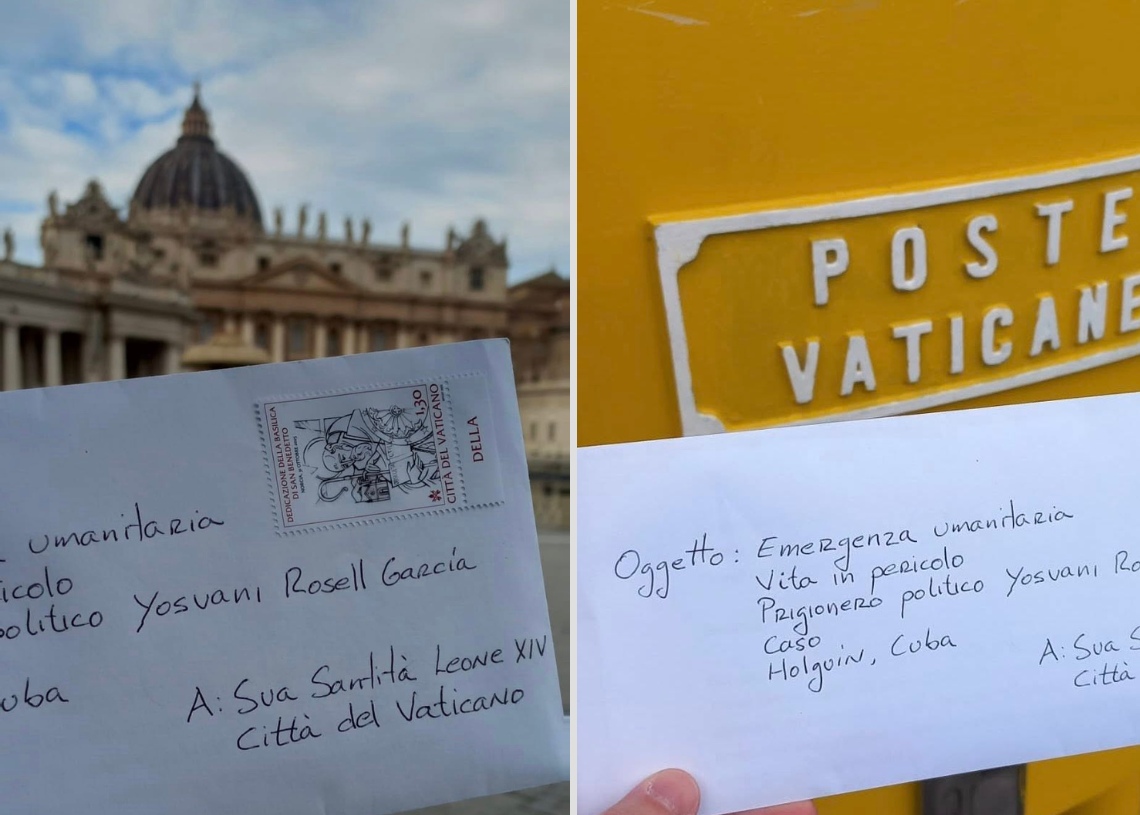 DEDICAZIONE DELLA BASILICA
DI SAN BENEDETTO
1,30
CITTÀ DEL VATICANO
DELLA
umanitaria
icolo
politico Yosvani Rosell García
uba
A: Sua Santità Leone XIV
Città del Vaticano
POSTE
VATICANE
Oggetto: Emergenza umanitaria
Vita in pericolo
Prigionero politico Yosvani Ro
Caso
Holguin, Cuba
A: Sua S
Città